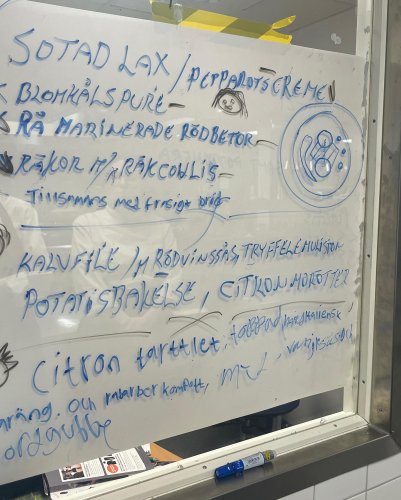 SOTAD LAX / PEPPAROTSCREME
BLOMKÅLSPURE
RÅ MARINERADE RÖDBETOR
RÄKOR M/ RÄKCOULIS
Tillsammans med
KALVFILE /M RÖDVINSSÅS, TRYFFEL
POTATISBAKELSE, CITRONMOROTTER
Citron tarttlet,
och rabarber kompott, med
ordgubbe